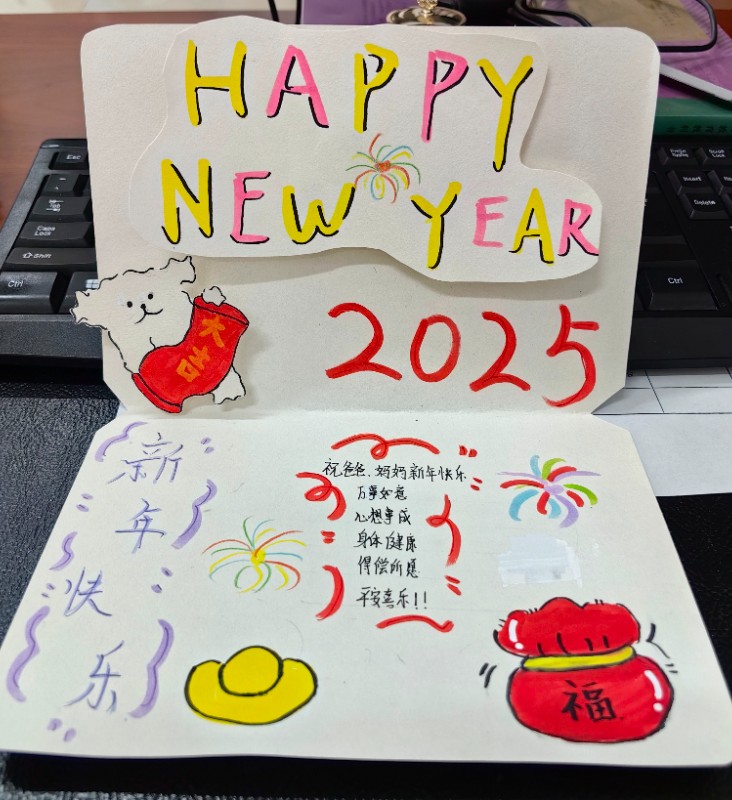 HAPPY
NEW YEAR
大吉
2025
新年快乐
祝爸爸、妈妈新年快乐
万事如意
心想事成
身体健康
得偿所愿
平安喜乐!!
福
Esc
Caps Lock
Shift
Ctrl
Insert
Delete
Ctrl